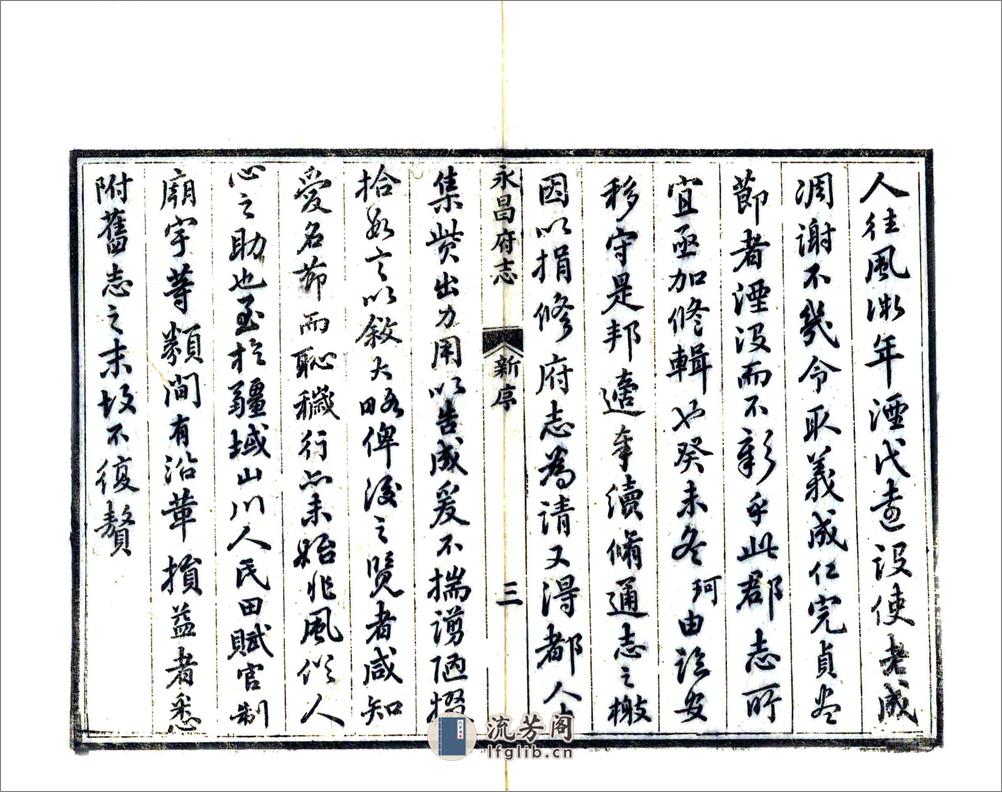 人往風微年湮代遠設使老成
凋謝不幾令取義成仁完貞盡
節者湮沒而不彰乎此郡志所
宜亟加修輯也癸未冬珂由臨安
移守是邦適奉續脩通志之檄
因以捐修府志為請又得都人士
永昌府志 新序 三
集貲出力用以告成爰不揣謭陋掇
拾數言以敘大略俾後之覽者咸知
愛名節而恥穢行亦未始非風俗人
心之助也至於疆域山川人民田賦官制
廟宇等類間有沿革損益者悉
附舊志之末故不復贅
流芳阁
lfglib.cn